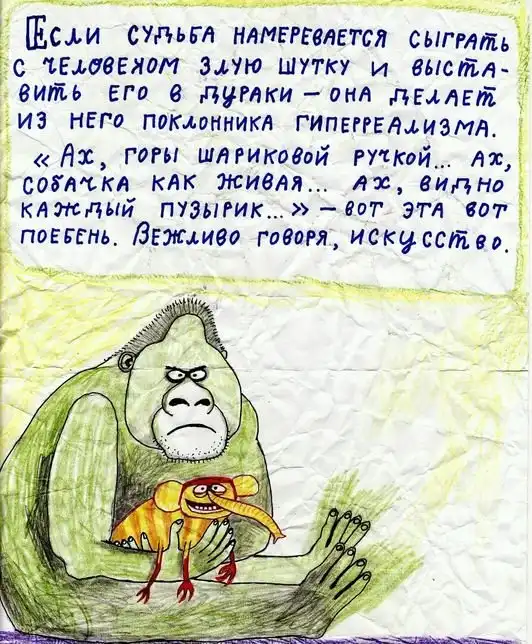 Если судьба намеревается сыграть
с человеком злую шутку и выста-
вить его в дураки — она делает
из него поклонника гиперреализма.
« Ах, горы шариковой ручкой... Ах,
собачка как живая... ах, видно
каждый пузырик...» — вот эта вот
поебень. Вежливо говоря, искусство.